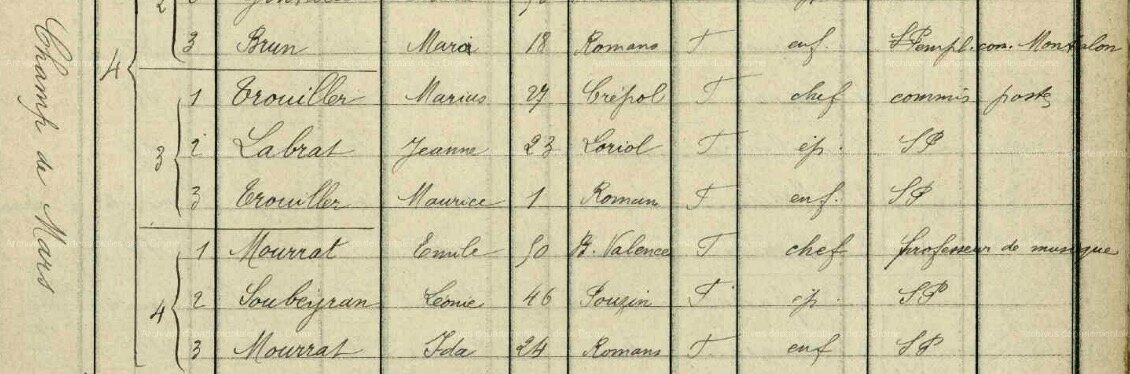 Champ de Mars
4
3 Brun Maria 18 Romans F enf. SP empl. com. Montalon
3
1 Trouiller Marius 27 Crépol F chef commis poste
2 Labrat Jeanne 23 Loriol F ép. SP
3 Trouiller Maurice 1 Romans F enf. SP
4
1 Mourrat Emile 50 B. Valence F chef professeur de musique
2 Soubeyran Léonie 46 Pouzin F ép. SP
3 Mourrat Ida 24 Romans F enf SP